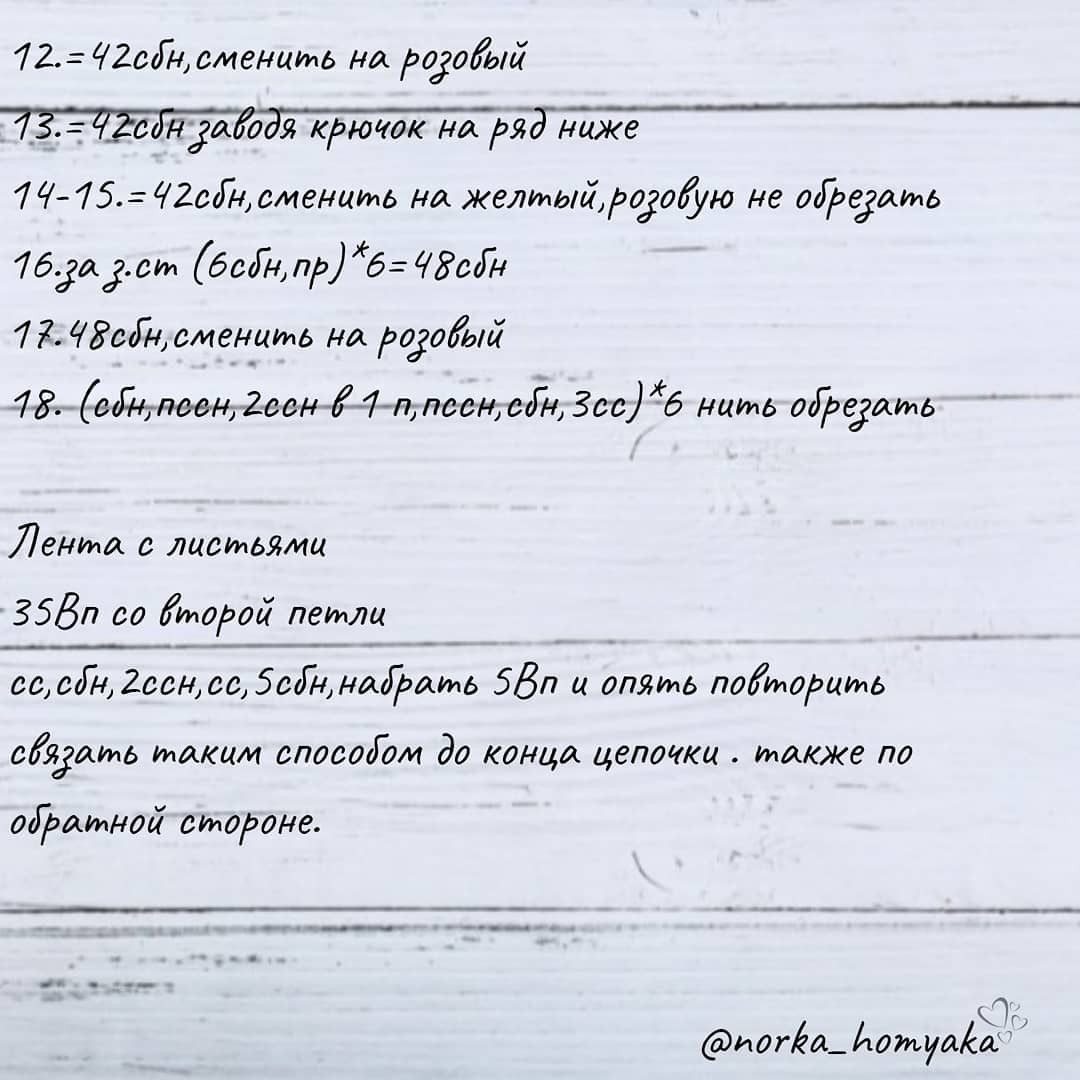 12.=42сбн,сменить на розовый
13.=42сбн заводя крючок на ряд ниже
14-15.=42сбн,сменить на желтый,розовую не обрезать
16.за з.ст (6сбн,пр)*6=48сбн
17.48сбн,сменить на розовый
18. (сбн,пссн,2ссн в 1 п,пссн,сбн,3сс)*6 нить обрезать
Лента с листьями
35Вп со второй петли
сс,сбн,2ссн,сс,5сбн,набрать 5Вп и опять повторить
связать таким способом до конца цепочки . также по
обратной стороне.
@norka_homyaka